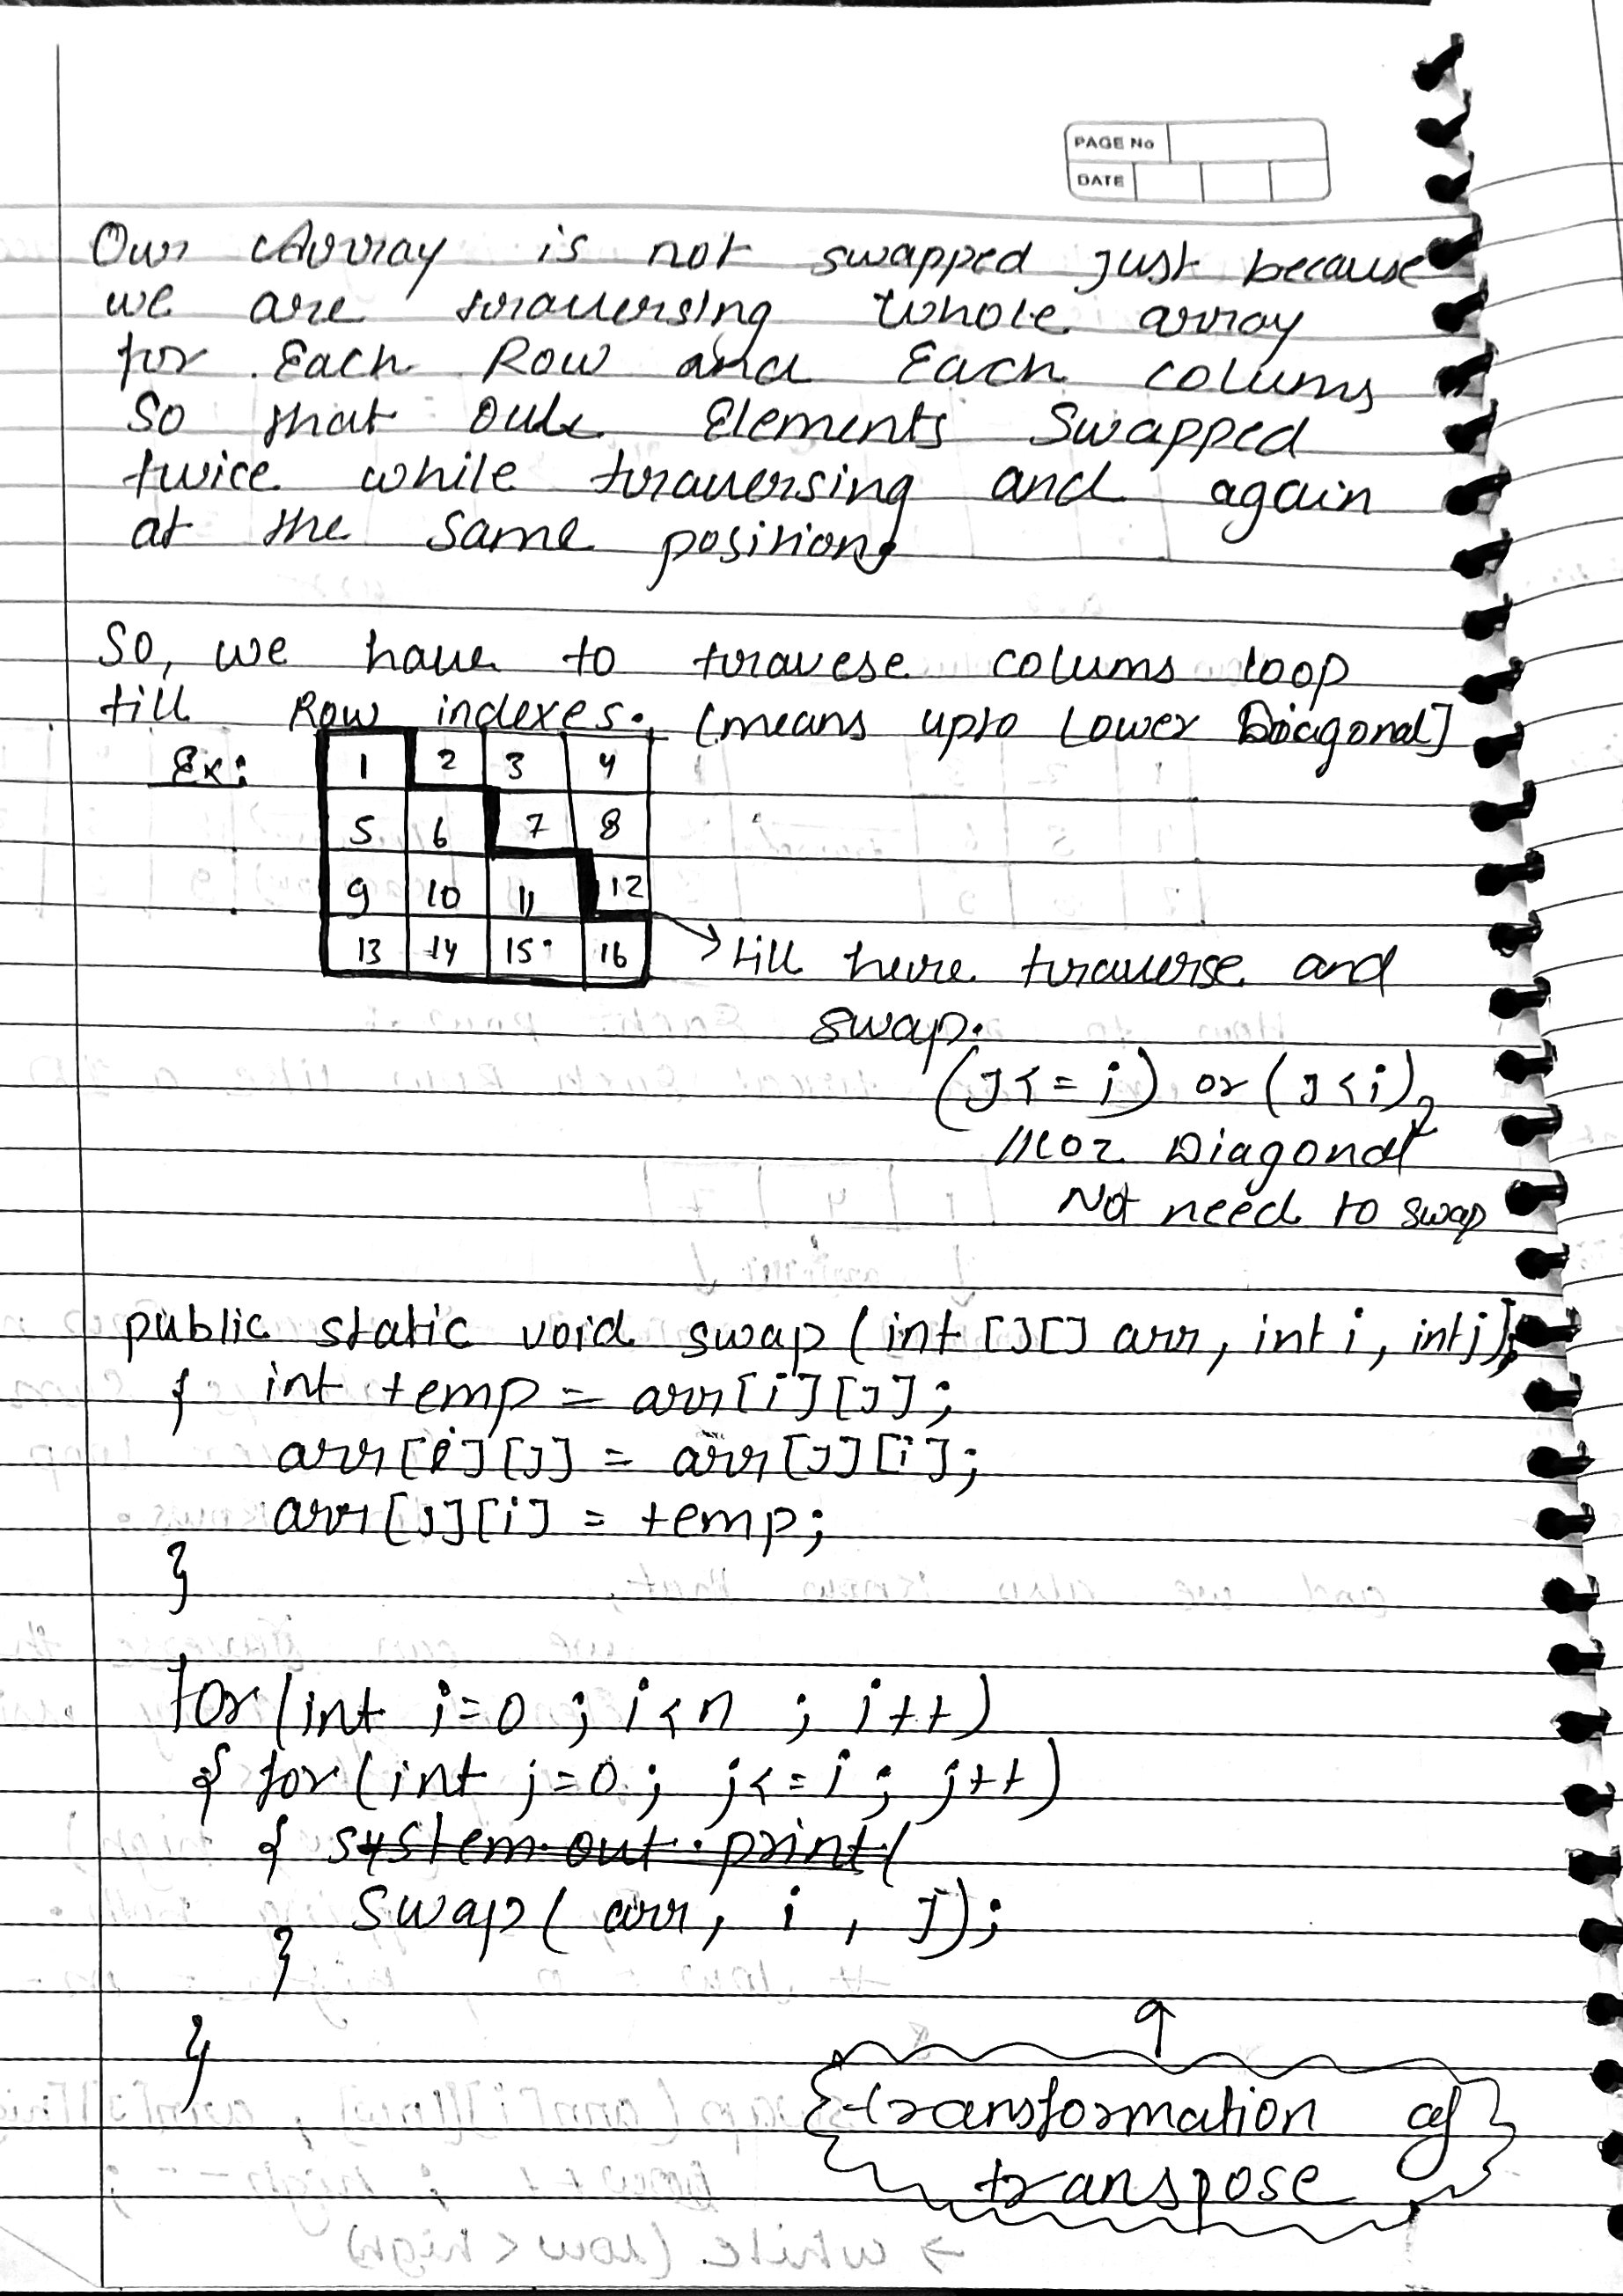 PAGE No
DATE
Our Array is not swapped just because
we are traversing whole array
for Each Row and Each colums
so that Elements Swapped
twice while traversing and again
at the same position.
So, we have to travese colums loop
till Row indexes. (means upto Lower Diagonal]
Ex:
1 2 3 4
5 6 7 8
9 10 11 12
13 14 15 16
till here traverse and
swap.
(j<=i) or (j<i)
//coz Diagonal
Not need to swap
public static void swap (int [][] arr, int i, int j)
{ int temp = arr[i][j];
arr[i][j] = arr[j][i];
arr[j][i] = temp;
}
for (int i=0 ; i<n ; i++)
{ for (int j=0; j<=i; j++)
{ system.out.print(
swap( arr, i , j);
}
}
transformation of
transpose